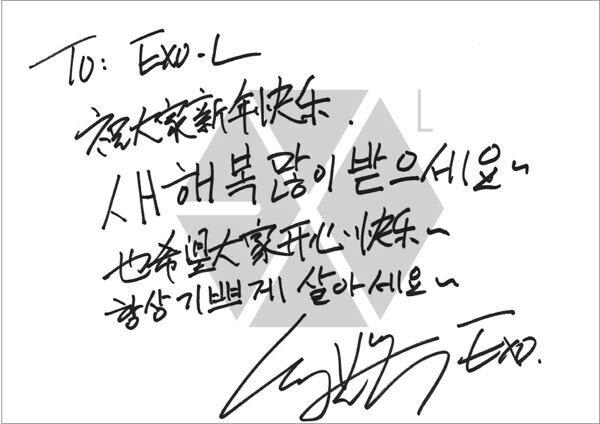 To: Exo-L
祝大家新年快乐.
L
새해 복 많이 받으세요~
也希望大家开心快乐~
항상 기쁘게 살아세요~
Exo.